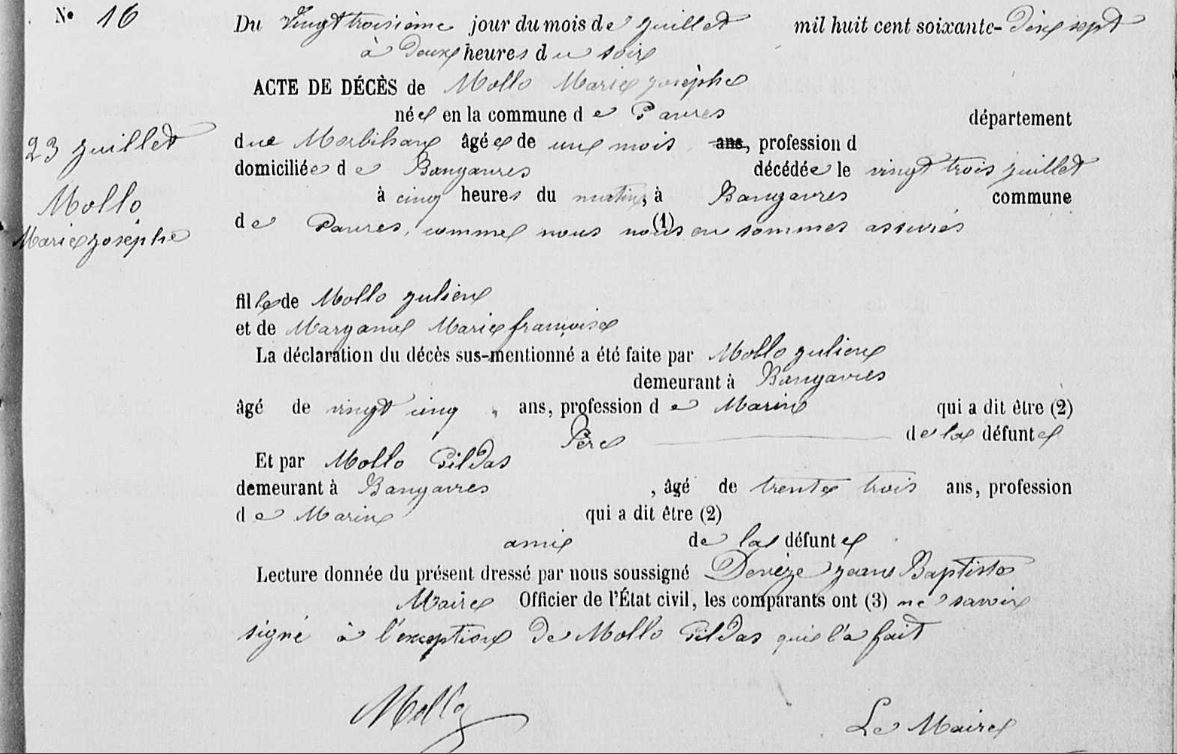 N° 16 Du vingt troisième jour du mois de juillet mil huit cent soixante-dix sept
à deux heures du soir
ACTE DE DÉCÈS de Mollo Marie josèphe
née en la commune de département
23 juillet
du Morbihan âgée de un mois ans, profession d
domiciliée de décédée le vingt trois juillet
Mollo
à cinq heures du matin, à commune
Marie josèphe
de , comme nous nous (1) en sommes assurés
fille de Mollo julien
et de Marie françoise
La déclaration du décès sus-mentionné a été faite par Mollo julien
demeurant à
âgé de vingt cinq ans, profession de Marin qui a dit être (2)
Père de la défunte
Et par Mollo Gildas
demeurant à , âgé de trente trois ans, profession
de Marin qui a dit être (2)
ami de la défunte
Lecture donnée du présent dressé par nous soussigné jean Baptiste
Maire Officier de l'État civil, les comparants ont (3) ne savoir
signé à l'exception de Mollo Gildas qui l'a fait
Mollo
Le Maire